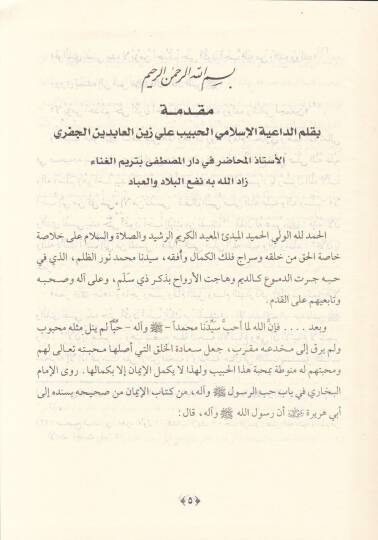 بسم الله الرحمن الرحيم
مقدمة
بقلم الداعية الإسلامي الحبيب علي زين العابدين الجفري
الأستاذ المحاضر في دار المصطفى بتريم الغناء
زاد الله به نفع البلاد والعباد
الحمد لله الولي الحميد المبدئ المعيد الكريم الرشيد والصلاة والسلام على خلاصة
خاصة الحق من خلقه وسراج فلك الكمال وأفقه، سيدنا محمد نور الظلم، الذي في
حبه جرت الدموع كالديم وهاجت الأرواح بذكر ذي سَلَمٍ، وعلى آله وصحبه
وتابعيهم على القدم.
وبعد .... فإنَّ الله لما أحبَّ سيِّدَنا محمداً - ﷺ وآله - حبًّا لم ينل مثله محبوب
ولم يرق إلى مخدعه مقرب، جعل سعادة الخلق التي أصلها محبته تعالى لهم
ومحبتهم له منوطة بمحبة هذا الحبيب ولهذا لا يكمل الإيمان إلا بكمالها. روى الإمام
البخاري في باب حب الرسول ﷺ وآله، من كتاب الإيمان من صحيحه بسنده إلى
أبي هريرة رضي الله عنه أن رسول الله ﷺ وآله، قال:
﴿٥﴾